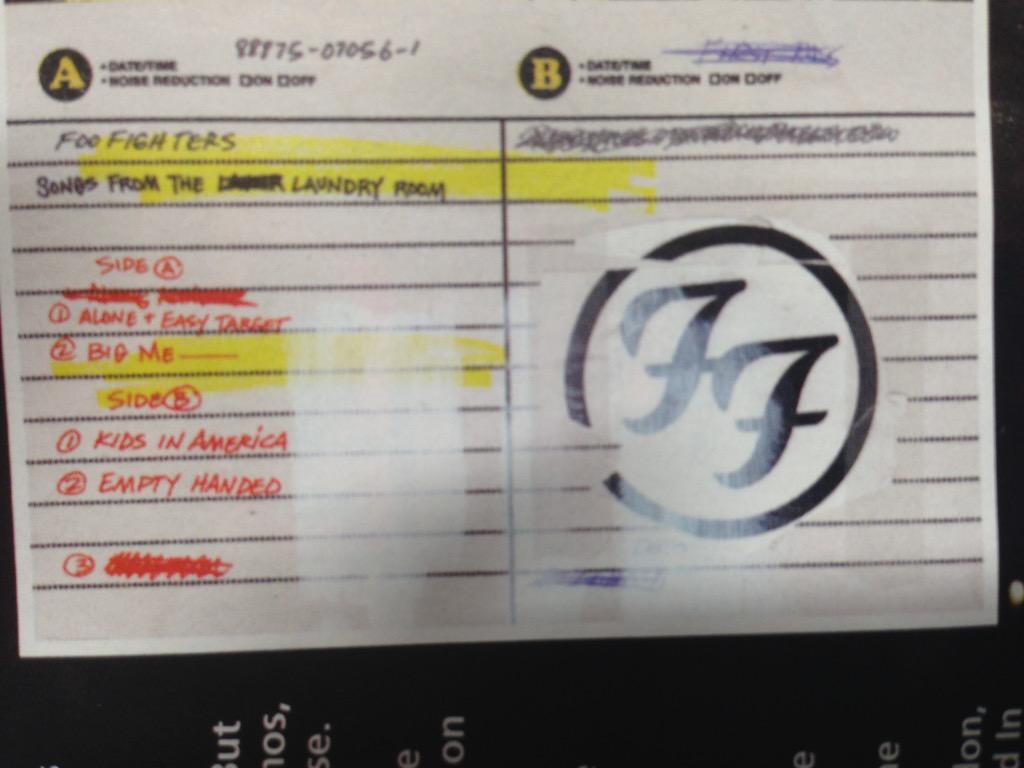 A • DATE/TIME 88875-07056-1
• NOISE REDUCTION ON OFF
B • DATE/TIME
• NOISE REDUCTION ON OFF
FOO FIGHTERS
SONGS FROM THE LAUNDRY ROOM
SIDE A
1 ALONE + EASY TARGET
2 BIG ME
SIDE B
1 KIDS IN AMERICA
2 EMPTY HANDED
3
FF
But
se.
on